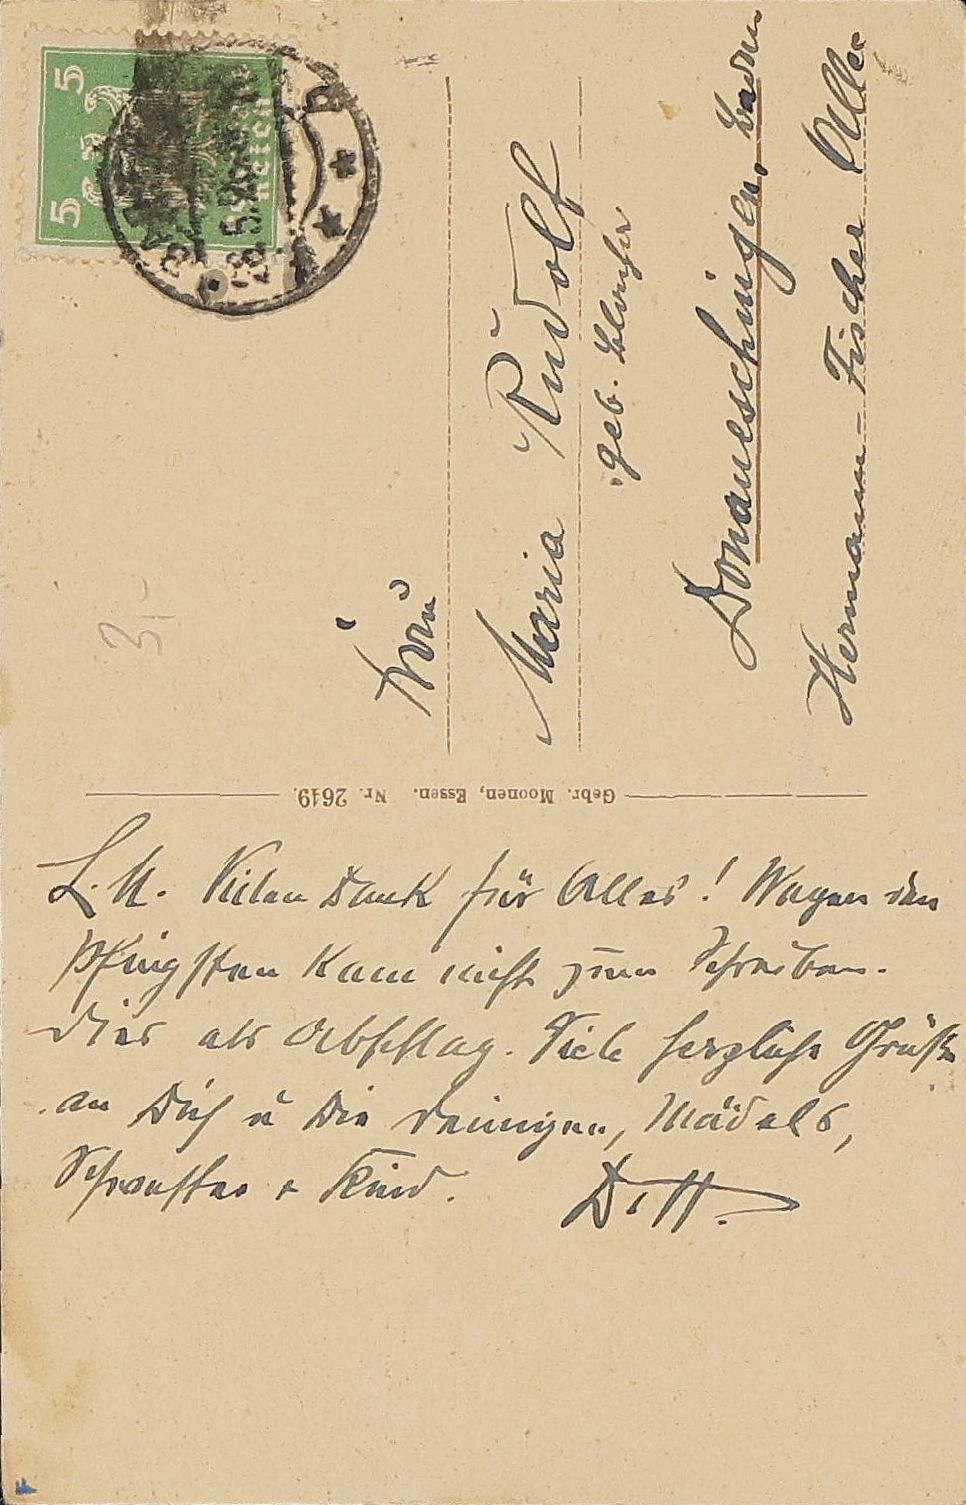 5 5
Frau
Maria Rudolf
geb.
Donaueschingen, Baden
Hermann-Fischer Allee
3.-
Gebr. Moonen, Essen. Nr. 2619.
L. M. Vielen Dank für Alles! Wegen den
Pfingsten kam nicht zum Schreiben.
Dies als Abschlag. Viele herzliche Grüße
an Dich u die Deinigen, Mädels,
Schwester + Kind.